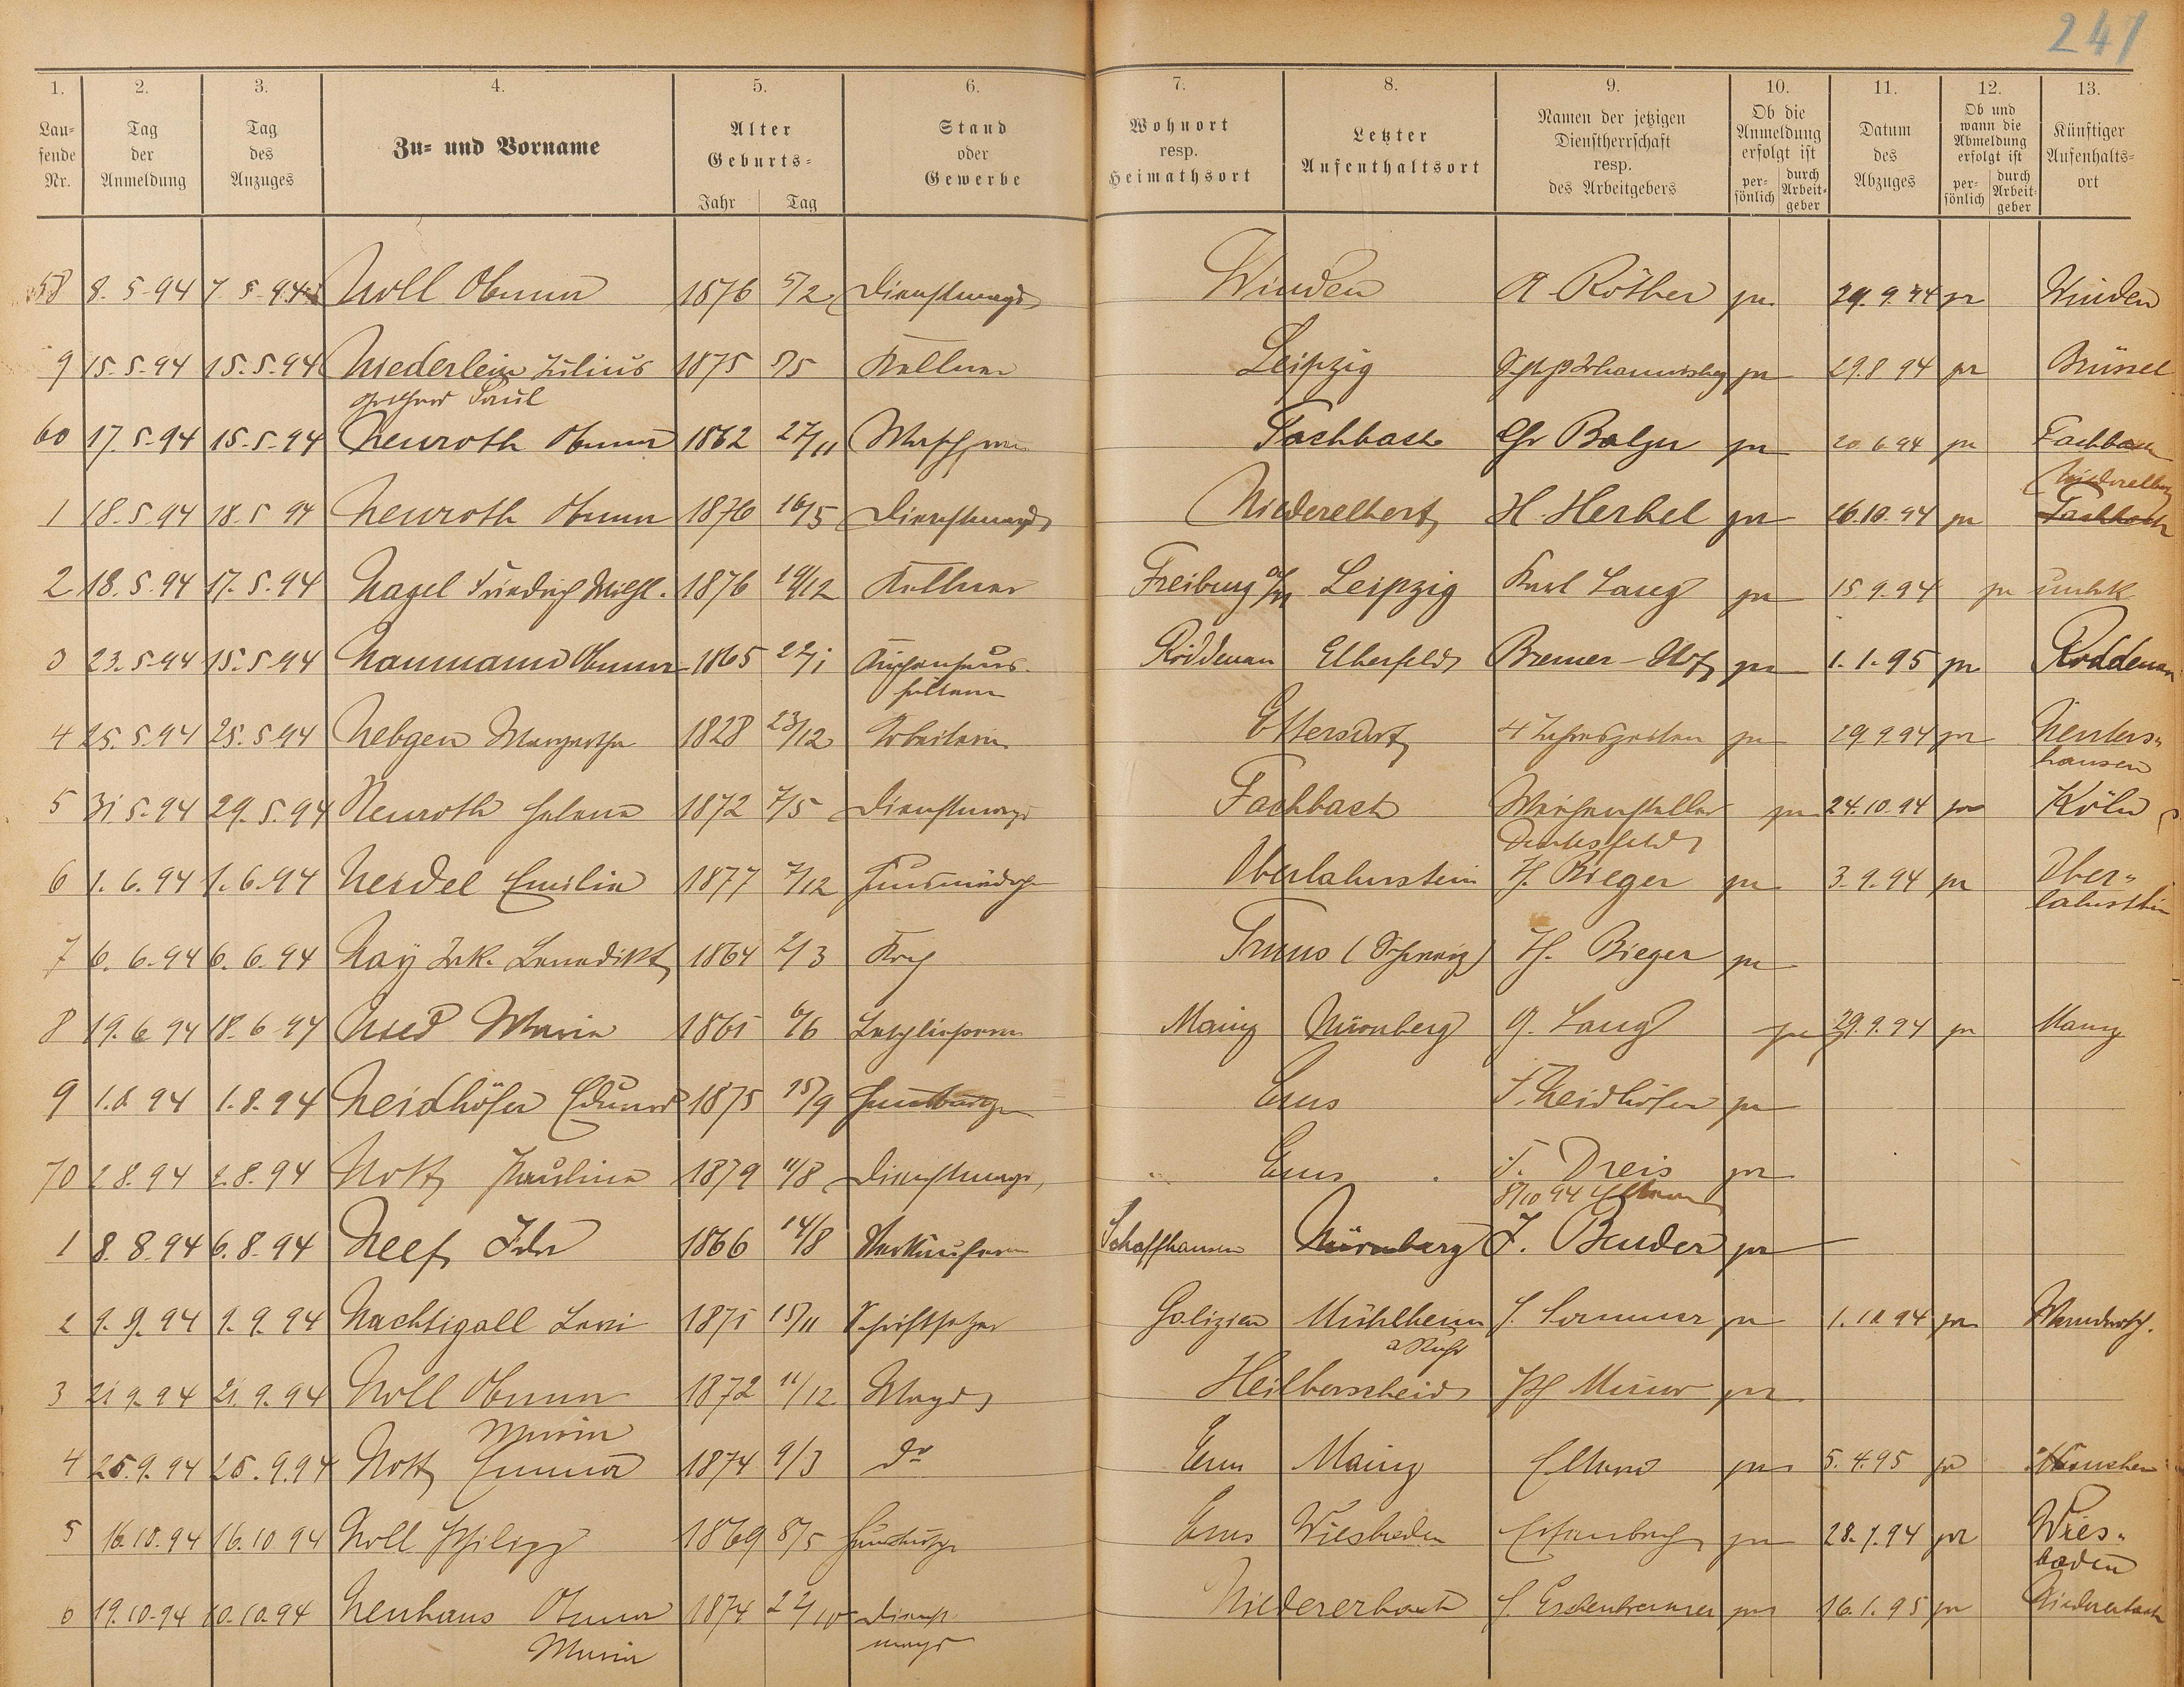 247
1. 2. 3. 4. 5. 6. 7. 8. 9. 10. 11. 12. 13.
Lau=
fende
Nr.
Tag
der
Anmeldung
Tag
des
Anzuges
Zu= und Vorname
Alter
Geburts=
Jahr Tag
Stand
oder
Gewerbe
Wohnort
resp.
Heimathsort
Letzter
Aufenthaltsort
Namen der jetzigen
Dienstherrschaft
resp.
des Arbeitgebers
Ob die
Anmeldung
erfolgt ist
per=
sönlich
durch
Arbeit=
geber
Datum
des
Abzuges
Ob und
wann die
Abmeldung
erfolgt ist
per=
sönlich
durch
Arbeit=
geber
Künftiger
Aufenthalts=
ort
58 8. 5. 94 7. 5. 94 Noll Anna 1876 5/2 Dienstmagd Winden A Röther pr 29. 9. 94 pr Winden
9 15. 5. 94 15. 5. 94 Niederlein Julius 1875 5/5 Kellner Leipzig pr 29. 8 94 pr Brüssel
Paul
60 17. 5. 94 15. 5. 94 Neuroth Anna 1862 27/11 Fachbach Chr Balzer pr 20. 6 94 pr Fachbach
1 18. 5. 94 18. 5 94 Neuroth Anna 1876 16/5 Dienstmagd Niederelbert H. Herbel pr 26. 10. 94 pr Niederelbert
Fachbach
2 18. 5. 94 17. 5. 94 Nagel Friedrich Wilh. 1876 19/12 Kellner Freiburg Leipzig Karl Lang pr 15. 9. 94 pr unbk
3 23. 5. 94 15. 5. 94 Naumann Anna 1865 22/1 Küchenhaus-
hälterin Röddenau Elberfeld Bremer-Hof pr 1. 1. 95 pr Röddenau
4 25. 5. 94 25. 5. 94 Nebgen Margaretha 1828 23/12 Arbeiterin Ettersdorf 4 Jahreszeiten pr 29. 9. 94 pr Nenters-
hausen
5 31 5. 94 29. 5. 94 Neuroth Helene 1872 7/5 Dienstmagd Fachbach pr 24. 10. 94 pr Köln
6 1. 6. 94 1. 6. 94 Neidel Emilie 1877 7/12 Hausmädchen Oberlahnstein H. Bieger pr 3. 9. 94 pr Ober-
lahnstein
7 6. 6. 94 6. 6. 94 Nay Jak. Benedikt 1864 2/3 Koch Truns (Schweiz) H. Bieger pr
8 19. 6 94 18. 6 94 Maria 6/6 Mainz Nürnberg G. Lang pr 29. 9. 94 pr Mainz
9 1. 8. 94 1. 8. 94 Neidhöfer Eduard 1875 15/9 Hausbursche Ems F. Neidhöfer pr
70 2 8. 94 2. 8. 94 Nott Pauline 1879 11/8 Dienstmagd Ems F. Dreis pr
8/10 94
1 8. 8. 94 6. 8. 94 Neef Ida 1866 14/8 Verkäuferin Schaffhausen Nürnberg J. Bender pr
2 9. 9. 94 9. 9. 94 Nachtigall Levi 1875 15/11 Schriftsetzer Galizien Mühlheim
a Ruhr Sommer pr 1. 10 94 pr Wandersch.
3 21 9. 94 21. 9. 94 Noll Anna
Maria 1872 11/12 Magd Heilberscheid pr
4 25. 9. 94 25. 9. 94 Nott Emma 1874 9/3 do Ems Mainz pr 5. 4. 95 pr
5 16. 10. 94 16. 10 94 Noll Philipp 1869 8/5 Ems Wiesbaden pr 28. 9. 94 pr Wies-
baden
6 19. 10. 94 10. 10. 94 Neuhaus Anna
Maria 1874 22/10 Dienst-
magd Niedererbach Eschenbrenner pr 16. 1. 95 pr Niedererbach